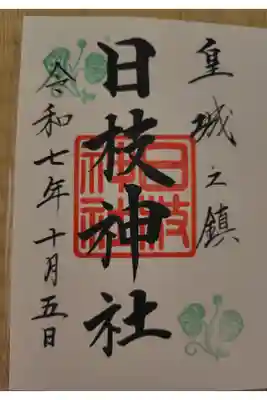 皇城之鎮
日枝神社
日枝神社
令和七年十月五日